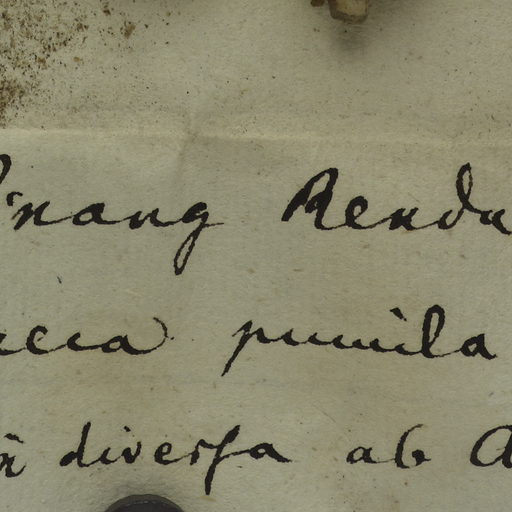 Pinang Rendu
cca pumila
diversa ab A